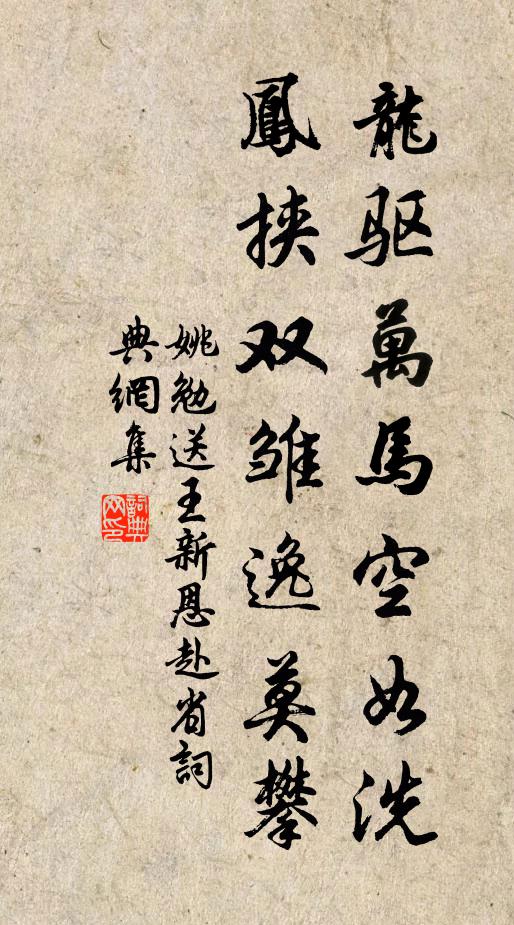 龍驱萬馬空如洗
鳳挟双雏逸莫攀
姚勉送王新恩赴省詞
典網集
詞典网印